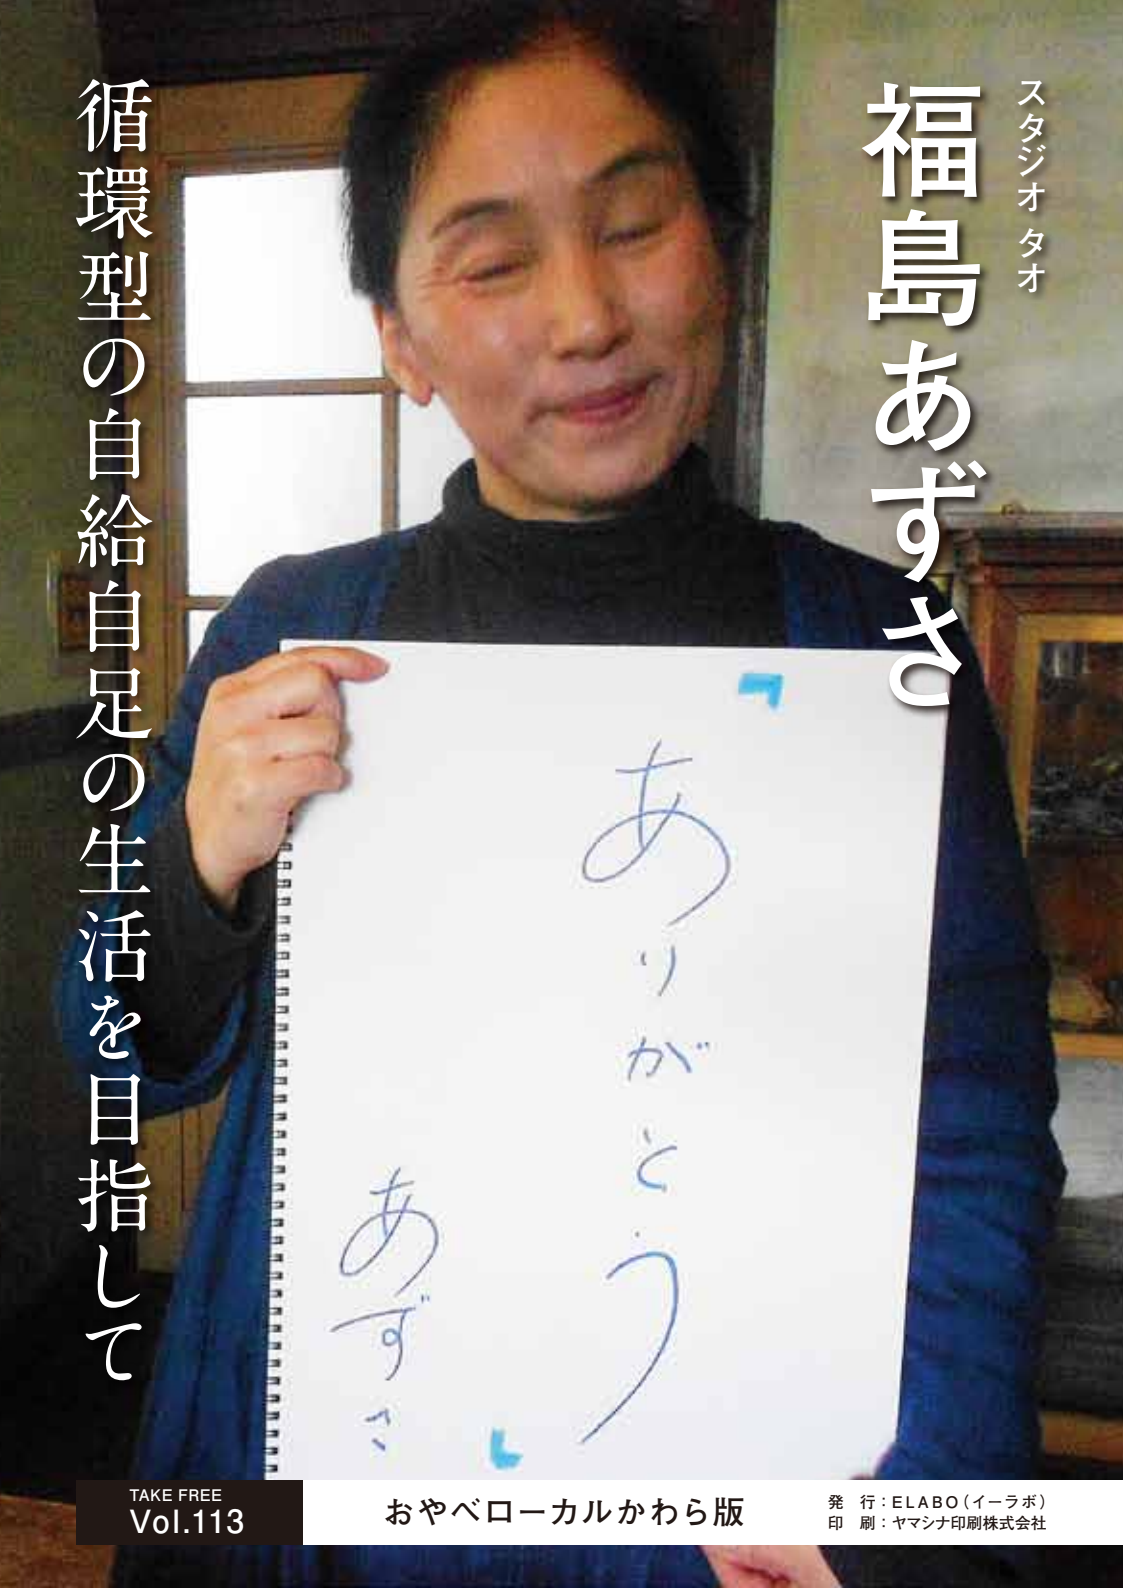 スタジオ タオ
福島あずさ
循環型の自給自足の生活を目指して
「
ありがとう
」
あずさ
TAKE FREE
Vol.113
おやべローカルかわら版
発 行：ELABO（イーラボ）
印 刷：ヤマシナ印刷株式会社